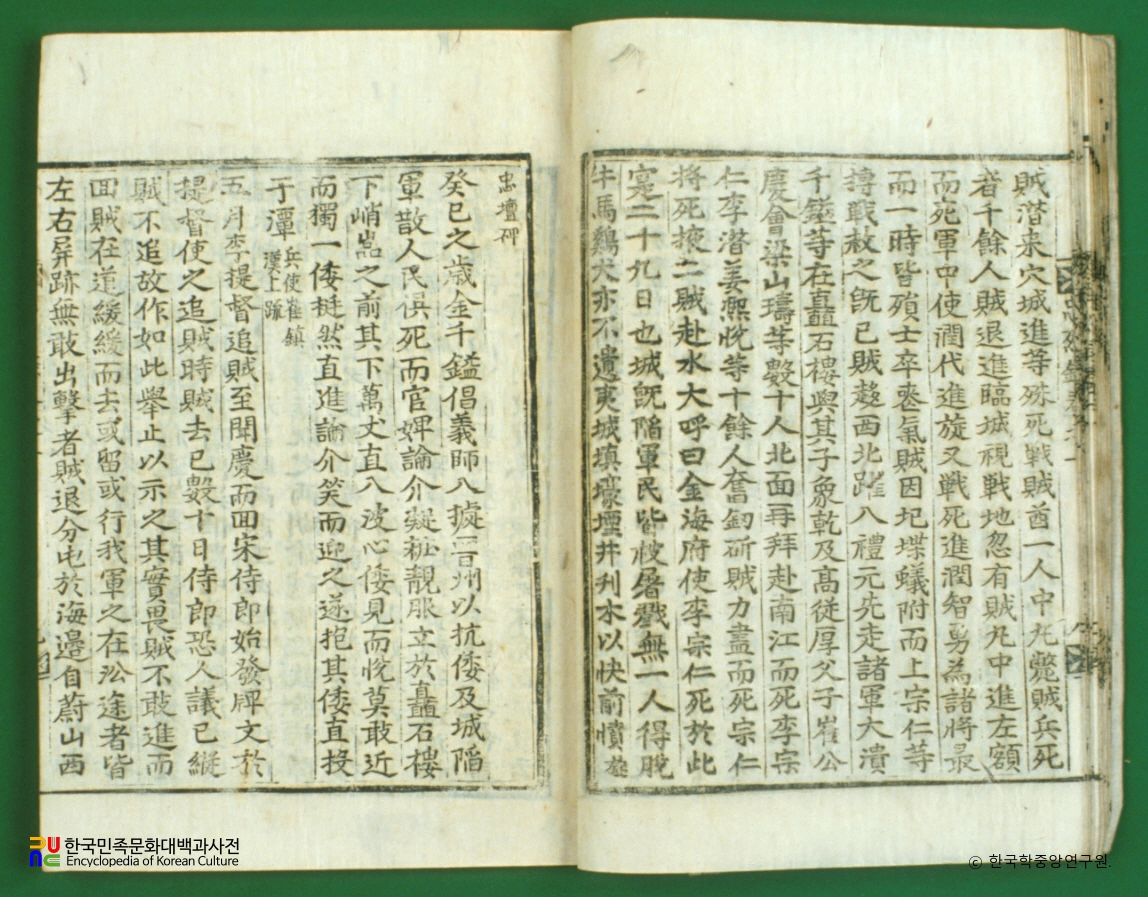 賊潜来穴城進等殊死戦賊酋一人中丸斃賊兵死
者千餘人賊退進臨城視戦地忽有賊丸中進左額
而死軍中使潤代進旋又戦死進潤智勇為諸將最
而一時皆殞士卒喪氣賊因圮堞蟻附而上宗仁等
搏戦赦之既已賊趍西北躍八禮元先走諸軍大潰
千鎰等在矗石樓與其子象乾及髙從厚父子崔公
慶會梁山璹等數十人北面再拜赴南江而死李宗
仁李潜姜熙恱等十餘人奮釼斫賊力盡而死宗仁
將死掖二賊赴水大呼曰金海府使李宗仁死於此
寔二十九日也城既陷軍民皆被屠戮無一人得脫
牛馬鷄犬亦不遺夷城填壕壇井刋木以快前憤
忠壇碑
癸巳之歳金千鎰倡義師八㨿晋州以抗倭及城陷
軍散人民俱死而官婢論介凝粧靚服立於矗石樓
下峭嵓之前其下萬丈直八波心倭見而恱莫敢近
而獨一倭挺然直進論介笑而迎之遂抱其倭直投
于潭 兵使崔鎮漢上疏
五月李提督追賊至聞慶而回宋侍郎始發牌文於
提督使之追賊時賊去已數十日侍郎恐人議已縱
賊不追故作如此舉止以示之其實畏賊不敢進而
回賊在道緩緩而去或留或行我軍之在㳂途者皆
左右屏跡無敢出擊者賊退分屯於海邊自蔚山西
한국민족문화대백과사전
Encyclopedia of Korean Culture
© 한국학중앙연구원.